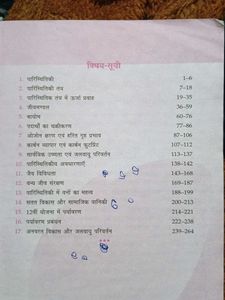 विषय-सूची
1. पारिस्थितिकी 1–6
2. पारिस्थितिकी तंत्र 7–18
3. पारिस्थितिक तंत्र में ऊर्जा प्रवाह 19–35
4. जीवमण्डल 36–59
5. बायोम 60–76
6. पदार्थों का चक्रीकरण 77–86
7. ओजोन क्षरण एवं हरित गृह प्रभाव 87–106
8. कार्बन व्यापार एवं कार्बन फुटप्रिंट 107–112
9. सार्वत्रिक उष्णता एवं जलवायु परिवर्तन 113–137
10. पारिस्थितिकीय अवधारणाएँ 138–142
11. जैव विविधता 143–168
12. वन्य जीव संरक्षण 169–187
13. पारिस्थितिकी में वनों का महत्त्व 188–199
14. सतत विकास और सामाजिक वानिकी 200–213
15. 12वीं योजना में पर्यावरण 214–221
16. पर्यावरण प्रबंधन 222–238
17. अनवरत विकास और जलवायु परिवर्तन 239–264